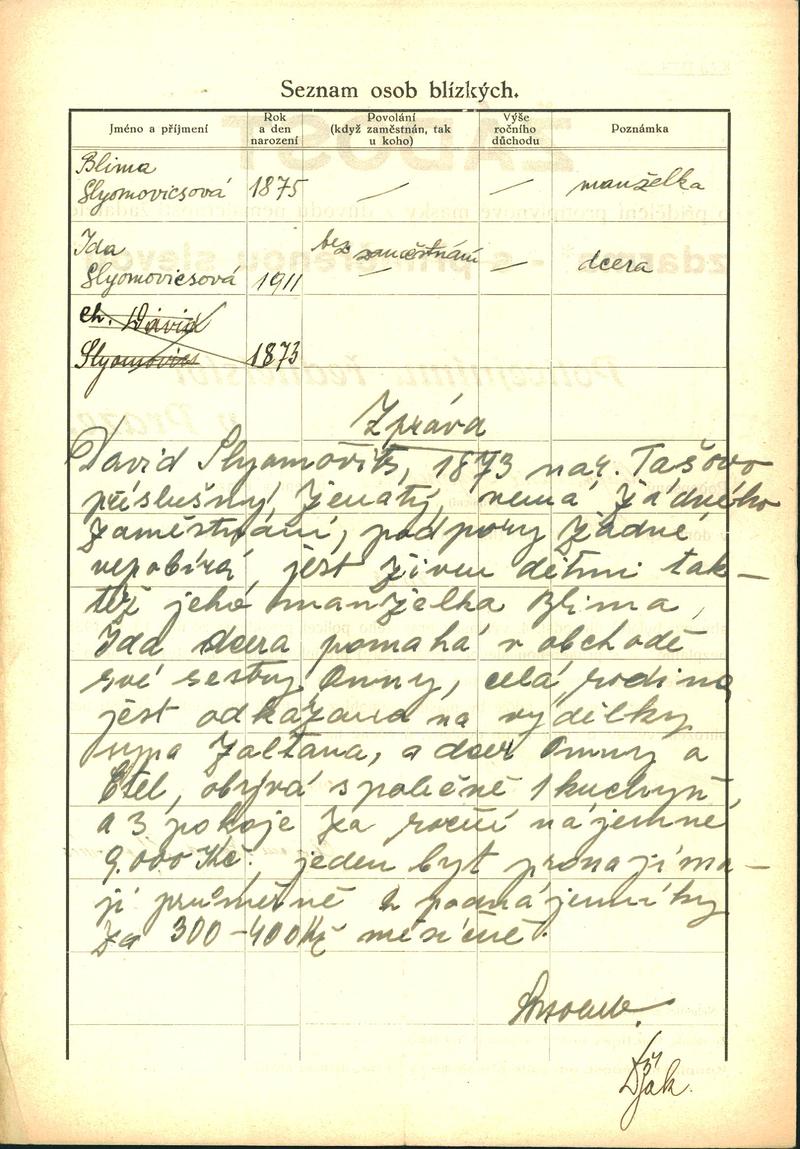 Seznam osob blízkých.
Jméno a příjmení
Rok a den narození
Povolání (když zaměstnán, tak u koho)
Výše ročního důchodu
Poznámka
Blima
Slyomovicsová 1875 — — manželka
Ida bez zaměstnání
Slyomovicsová 1911 — — dcera
ch. David
Slyomovics 1873
Zpráva
David Slyomovits, 1873 nar. Tašovo
příslušný, ženatý, nemá žádného
zaměstnání, podpory žádné
nepobírá, jest živen dětmi tak-
též jeho manželka Blima,
Ida dcera pomahá v obchodě
své sestry Anny, celá rodina
jest odkázana na vydělky
syna Zoltana, a dcer Anny a
Etel, obývá společně 1 kuchyň,
a 3 pokoje za roční nájemné
9.000 Kč. jeden byt pronajíma-
jí průměrně 2 podnájemníky
za 300-400 Kč měsíčně.